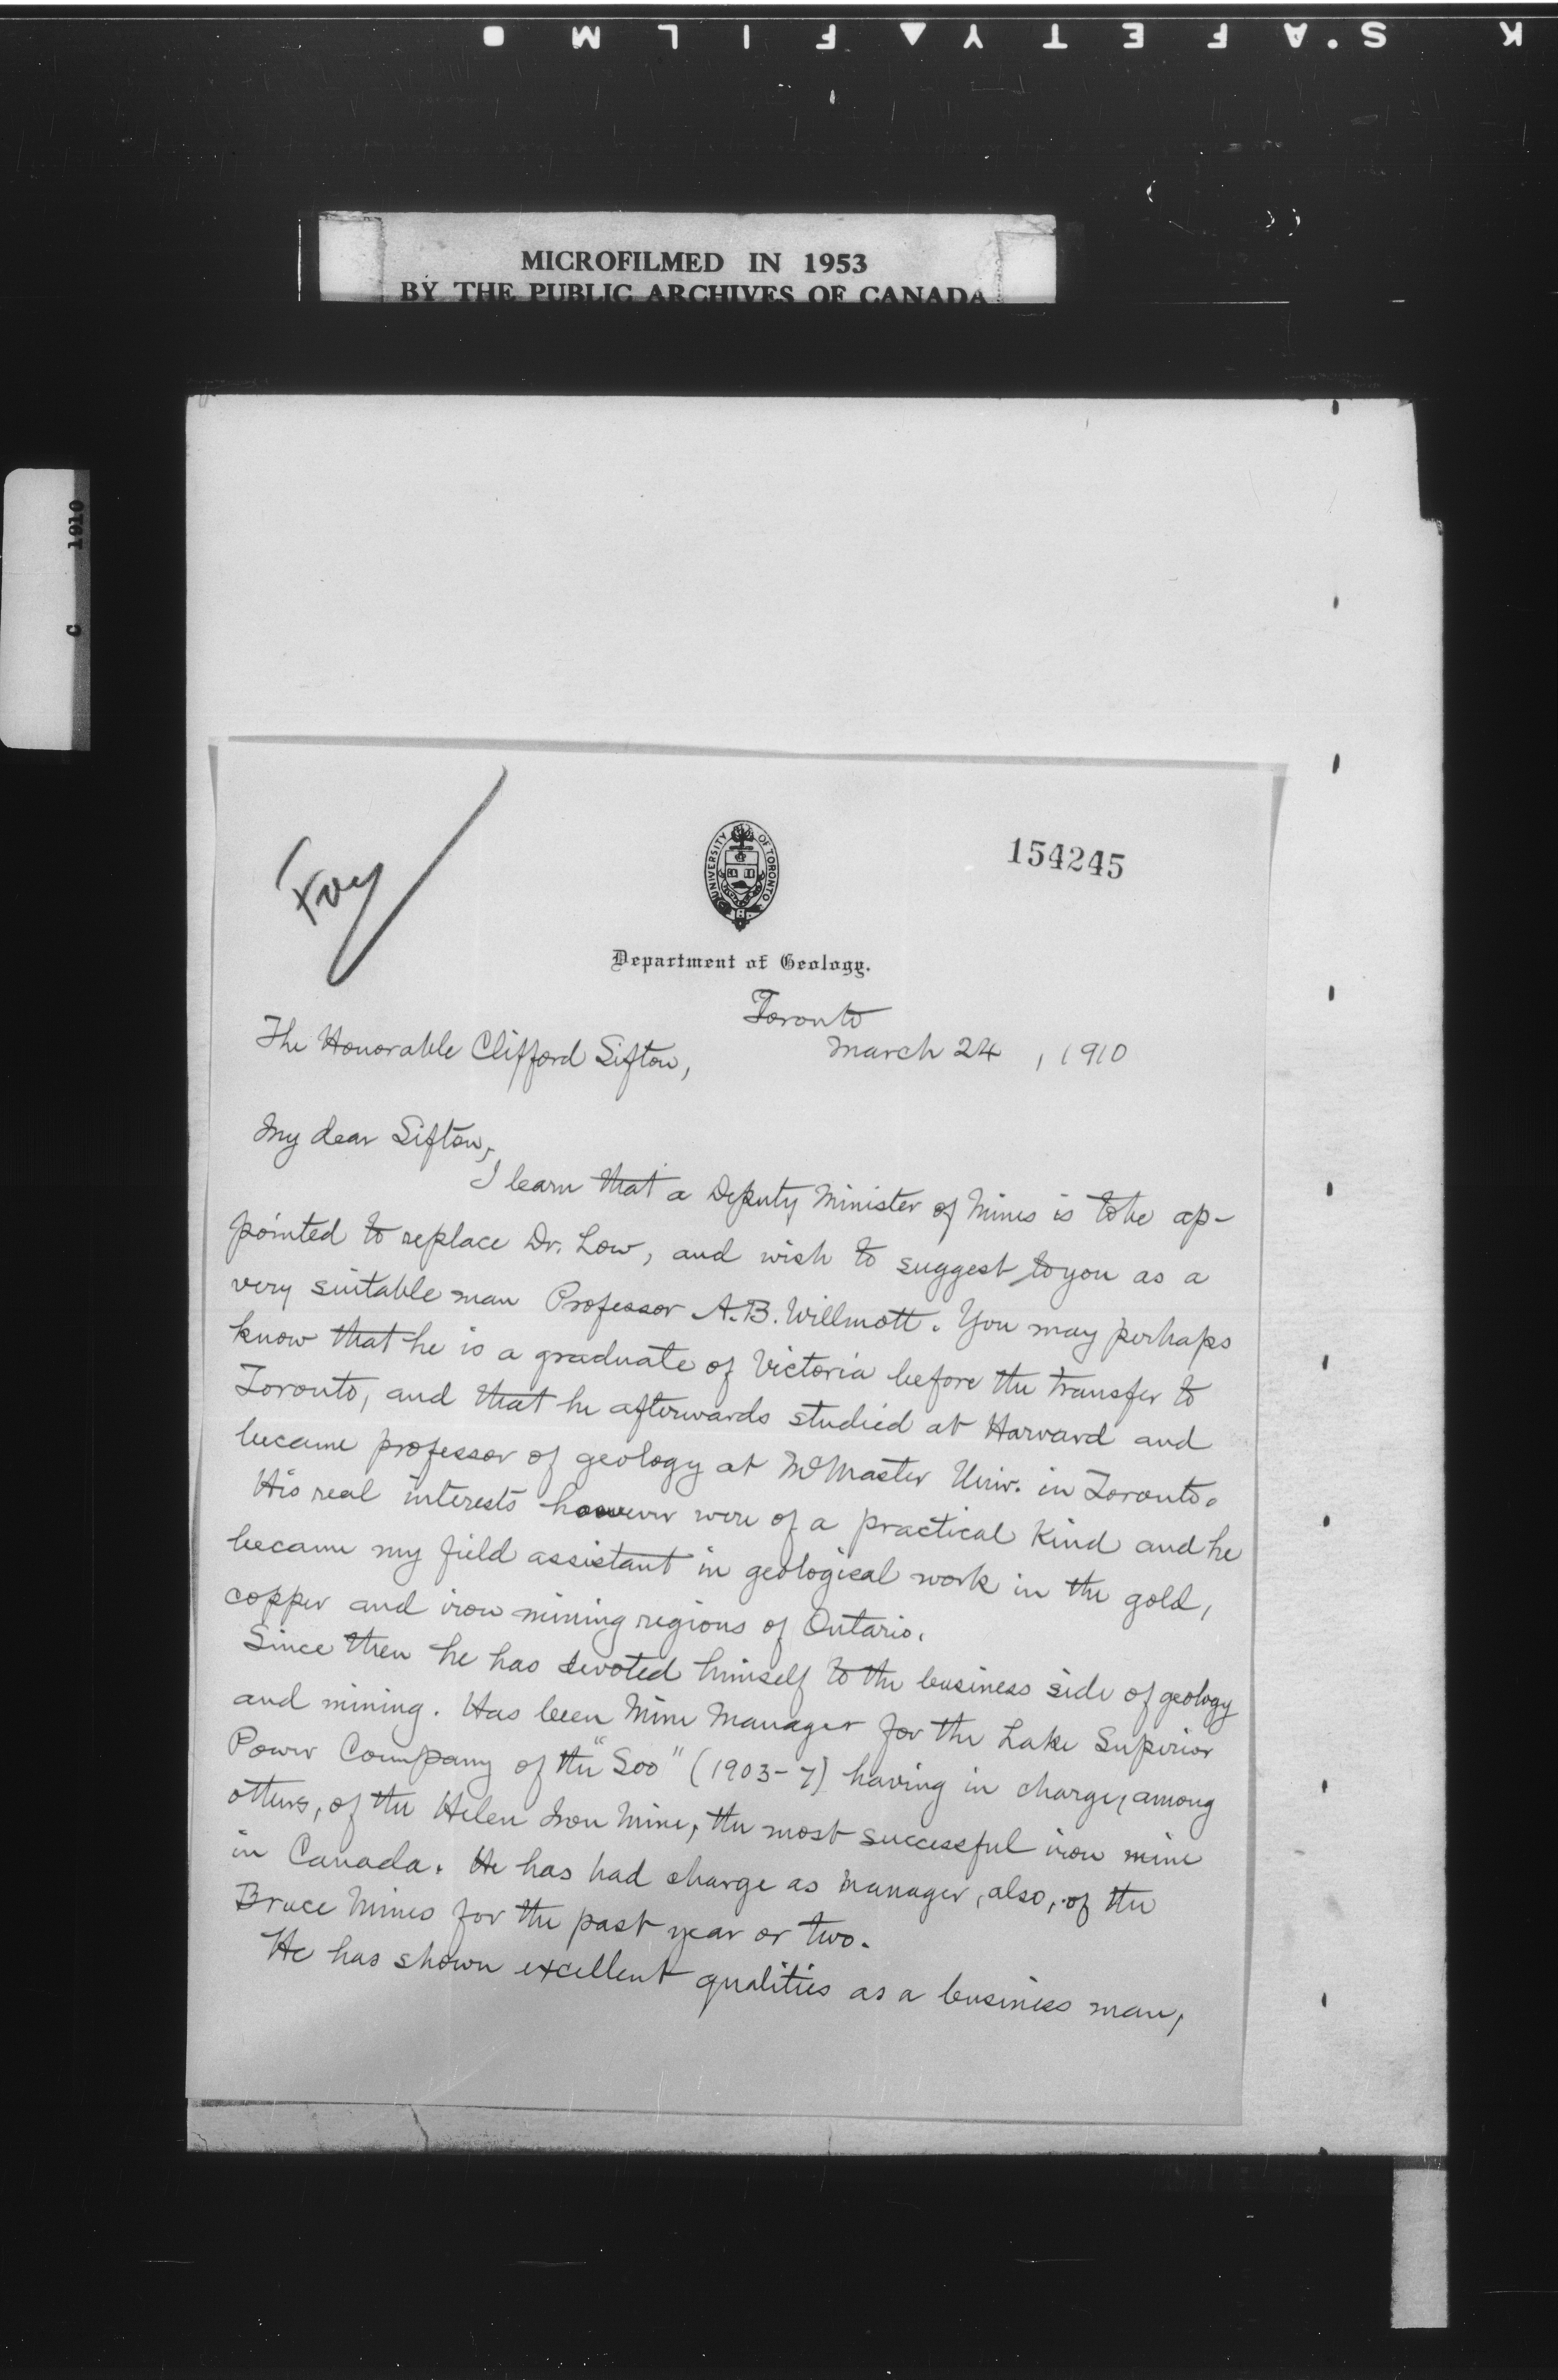 K S'AFETY▲FILM●
MICROFILMED IN 1953
BY THE PUBLIC ARCHIVES OF CANADA
C 1910
UNIVERSITY OF TORONTO
154245
Department of Geology.
Toronto
The Honorable Clifford Sifton,
March 24, 1910
My dear Sifton,
I learn that a Deputy Minister of Mines is to be ap-
pointed to replace Dr. Low, and wish to suggest to you as a
very suitable man Professor A.B. Willmott. You may perhaps
know that he is a graduate of Victoria before the transfer to
Toronto, and that he afterwards studied at Harvard and
became professor of geology at McMaster Univ. in Toronto.
His real interests however were of a practical kind and he
became my field assistant in geological work in the gold,
copper and iron mining regions of Ontario.
Since then he has devoted himself to the business side of geology
and mining. Has been Mine Manager for the Lake Superior
Power Company of the "Soo" (1903-7) having in charge, among
others, of the Helen Iron Mine, the most successful iron mine
in Canada. He has had charge as manager, also, of the
Bruce Mines for the past year or two.
He has shown excellent qualities as a business man,